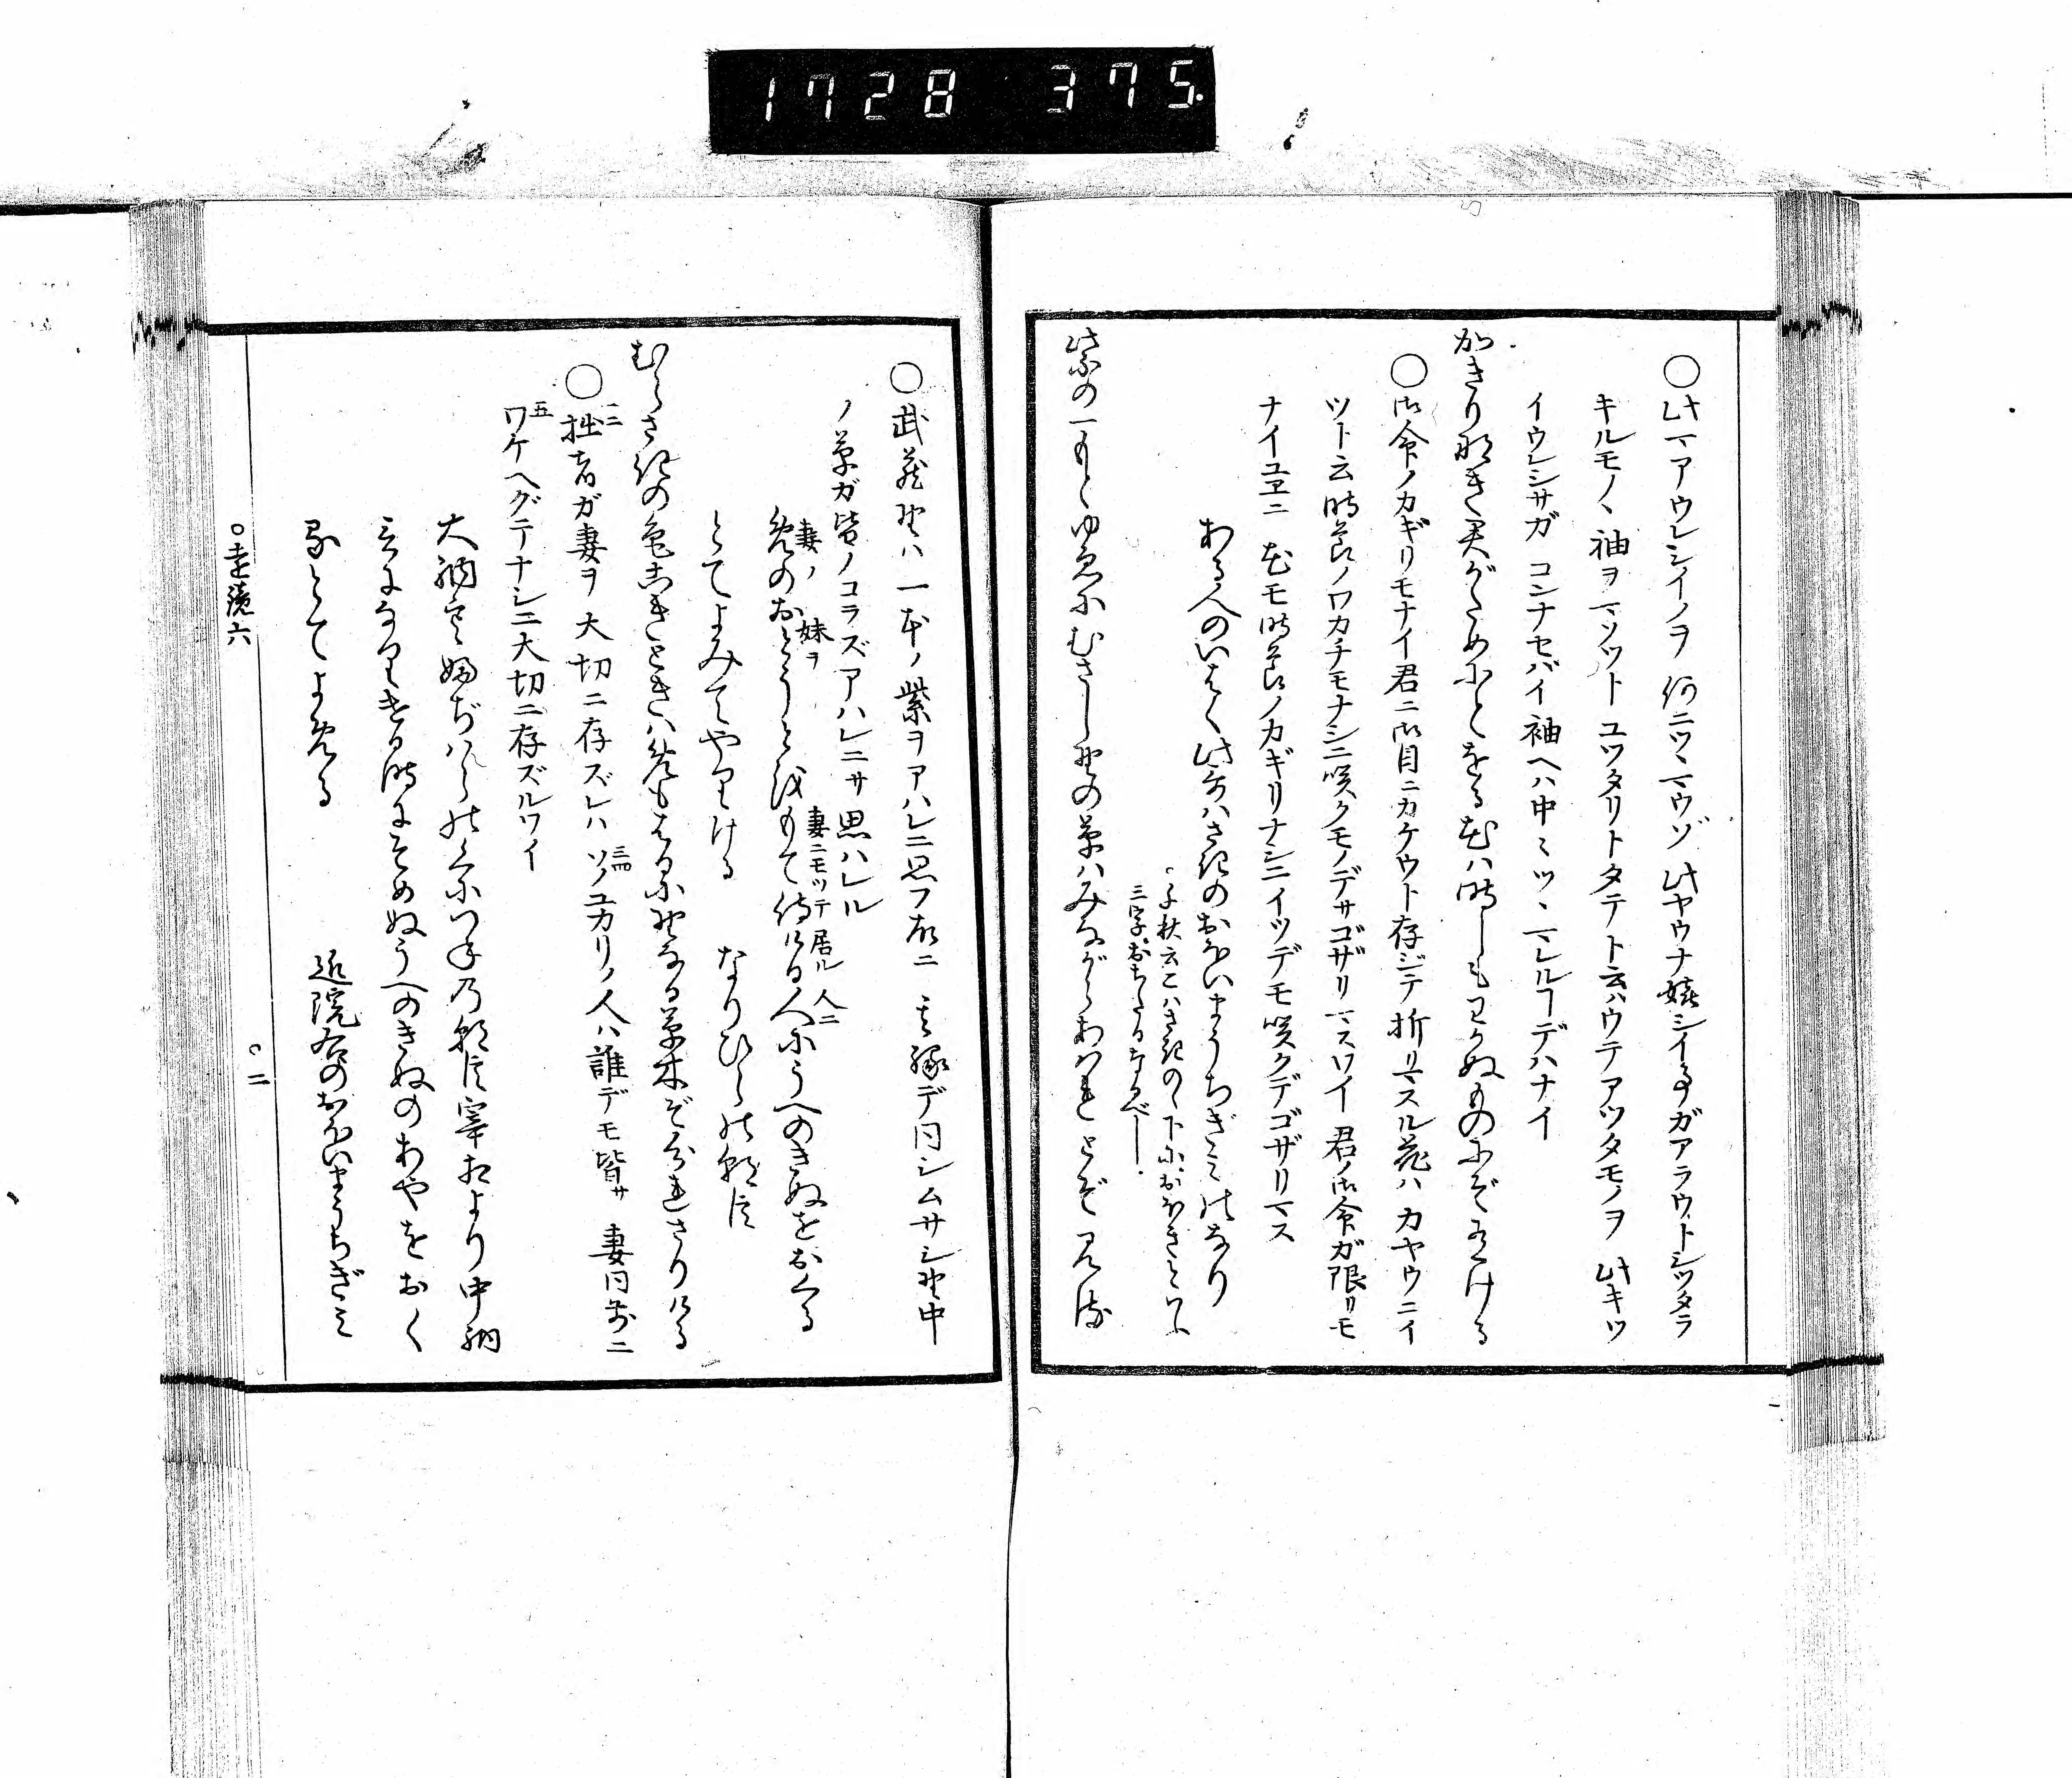 1728 375
○此マアウレシイノヲ 何ニツヽマウゾ 此ヤウナ嬉シイ事ガアラウトシツタラ
キルモノヽ袖ヲマソツト ユツタリトタテト云ハウテアツタモノヲ 此キツ
イウレシサガ コンナセバイ袖ヘハ中〻ツヽマレルヿデハナイ
かきり形き君がためにとをる花は時しもわかぬものにぞ有ける
○御命ノカギリモナイ君ニ御目ニカケウト存ジテ折リマスル花ハ カヤウニイ
ツト云時節ノワカチモナシニ咲クモノデサゴザリマスワイ 君ノ御命ガ限リモ
ナイユヱニ 花モ時節ノカギリナシニイツデモ咲クデゴザリマス
ある人のいはく此哥はさきのおほいまうちぎみ乃なり
○千秋云こはさきの下におほきといふ
三字おちたるなるべし
紫の一もとゆゑにむさし野の草はみながらあはれとぞ見る
○武蔵野ハ一本ノ紫ヲアハレニ思フ故ニ 其縁デ同シムサシ野中
ノ草ガ皆ノコラズアハレニサ思ハレル
妻ノ 妹ヲ 妻ニモツテ居ル 人ニ
めのおとうとをもて侍ける人にうへのきぬをおくる
とてよみてやりける なりひらの朝臣
むらさきの色こきときはめもはるに野なる草木ぞ分れさりける
○一二拙者ガ妻ヲ大切ニ存ズレハ 三四ソノユカリノ人ハ誰デモ皆サ 妻同前ニ
五ワケヘダテナシニ大切ニ存ズルワイ
大納言ふぢはらの国つねの朝臣宰相より中納
言になりける時にそめぬうへのきぬのあやをおく
るとてよめる 近院右のおほいまうちぎみ
○遠鏡六 ○二